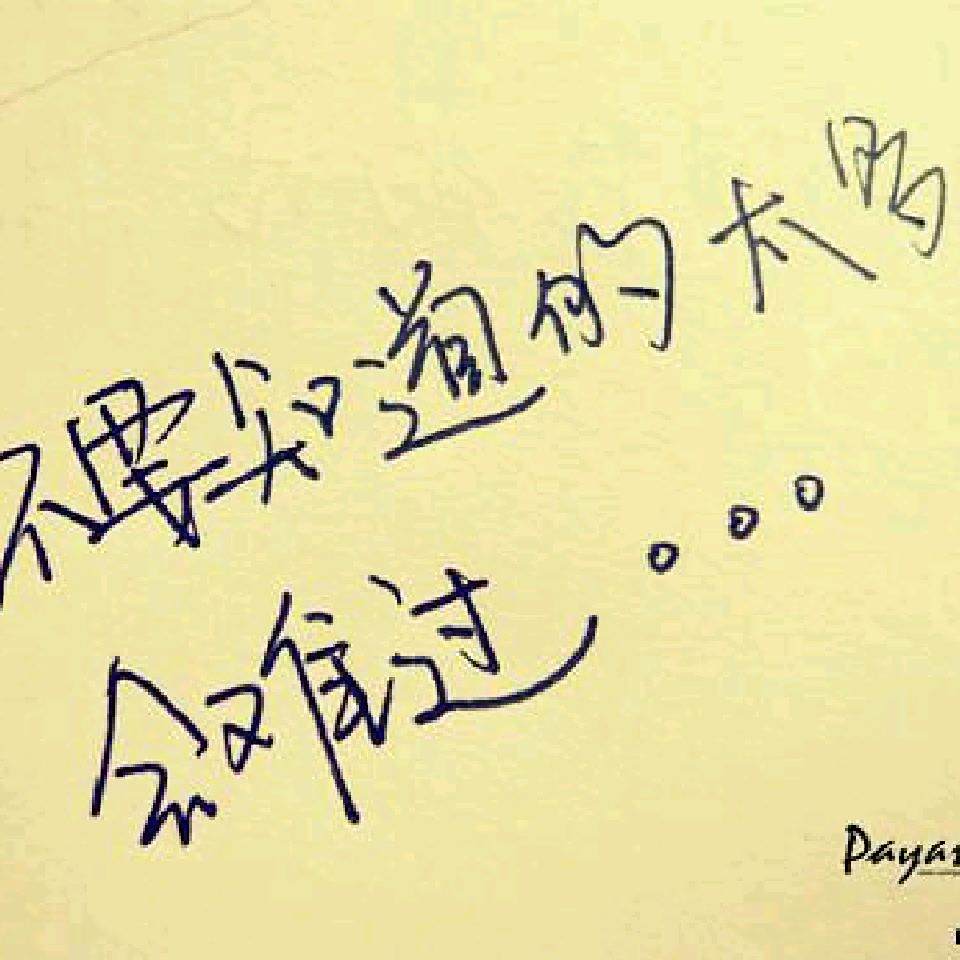 不要知道的太明
会难过。。。
Payas